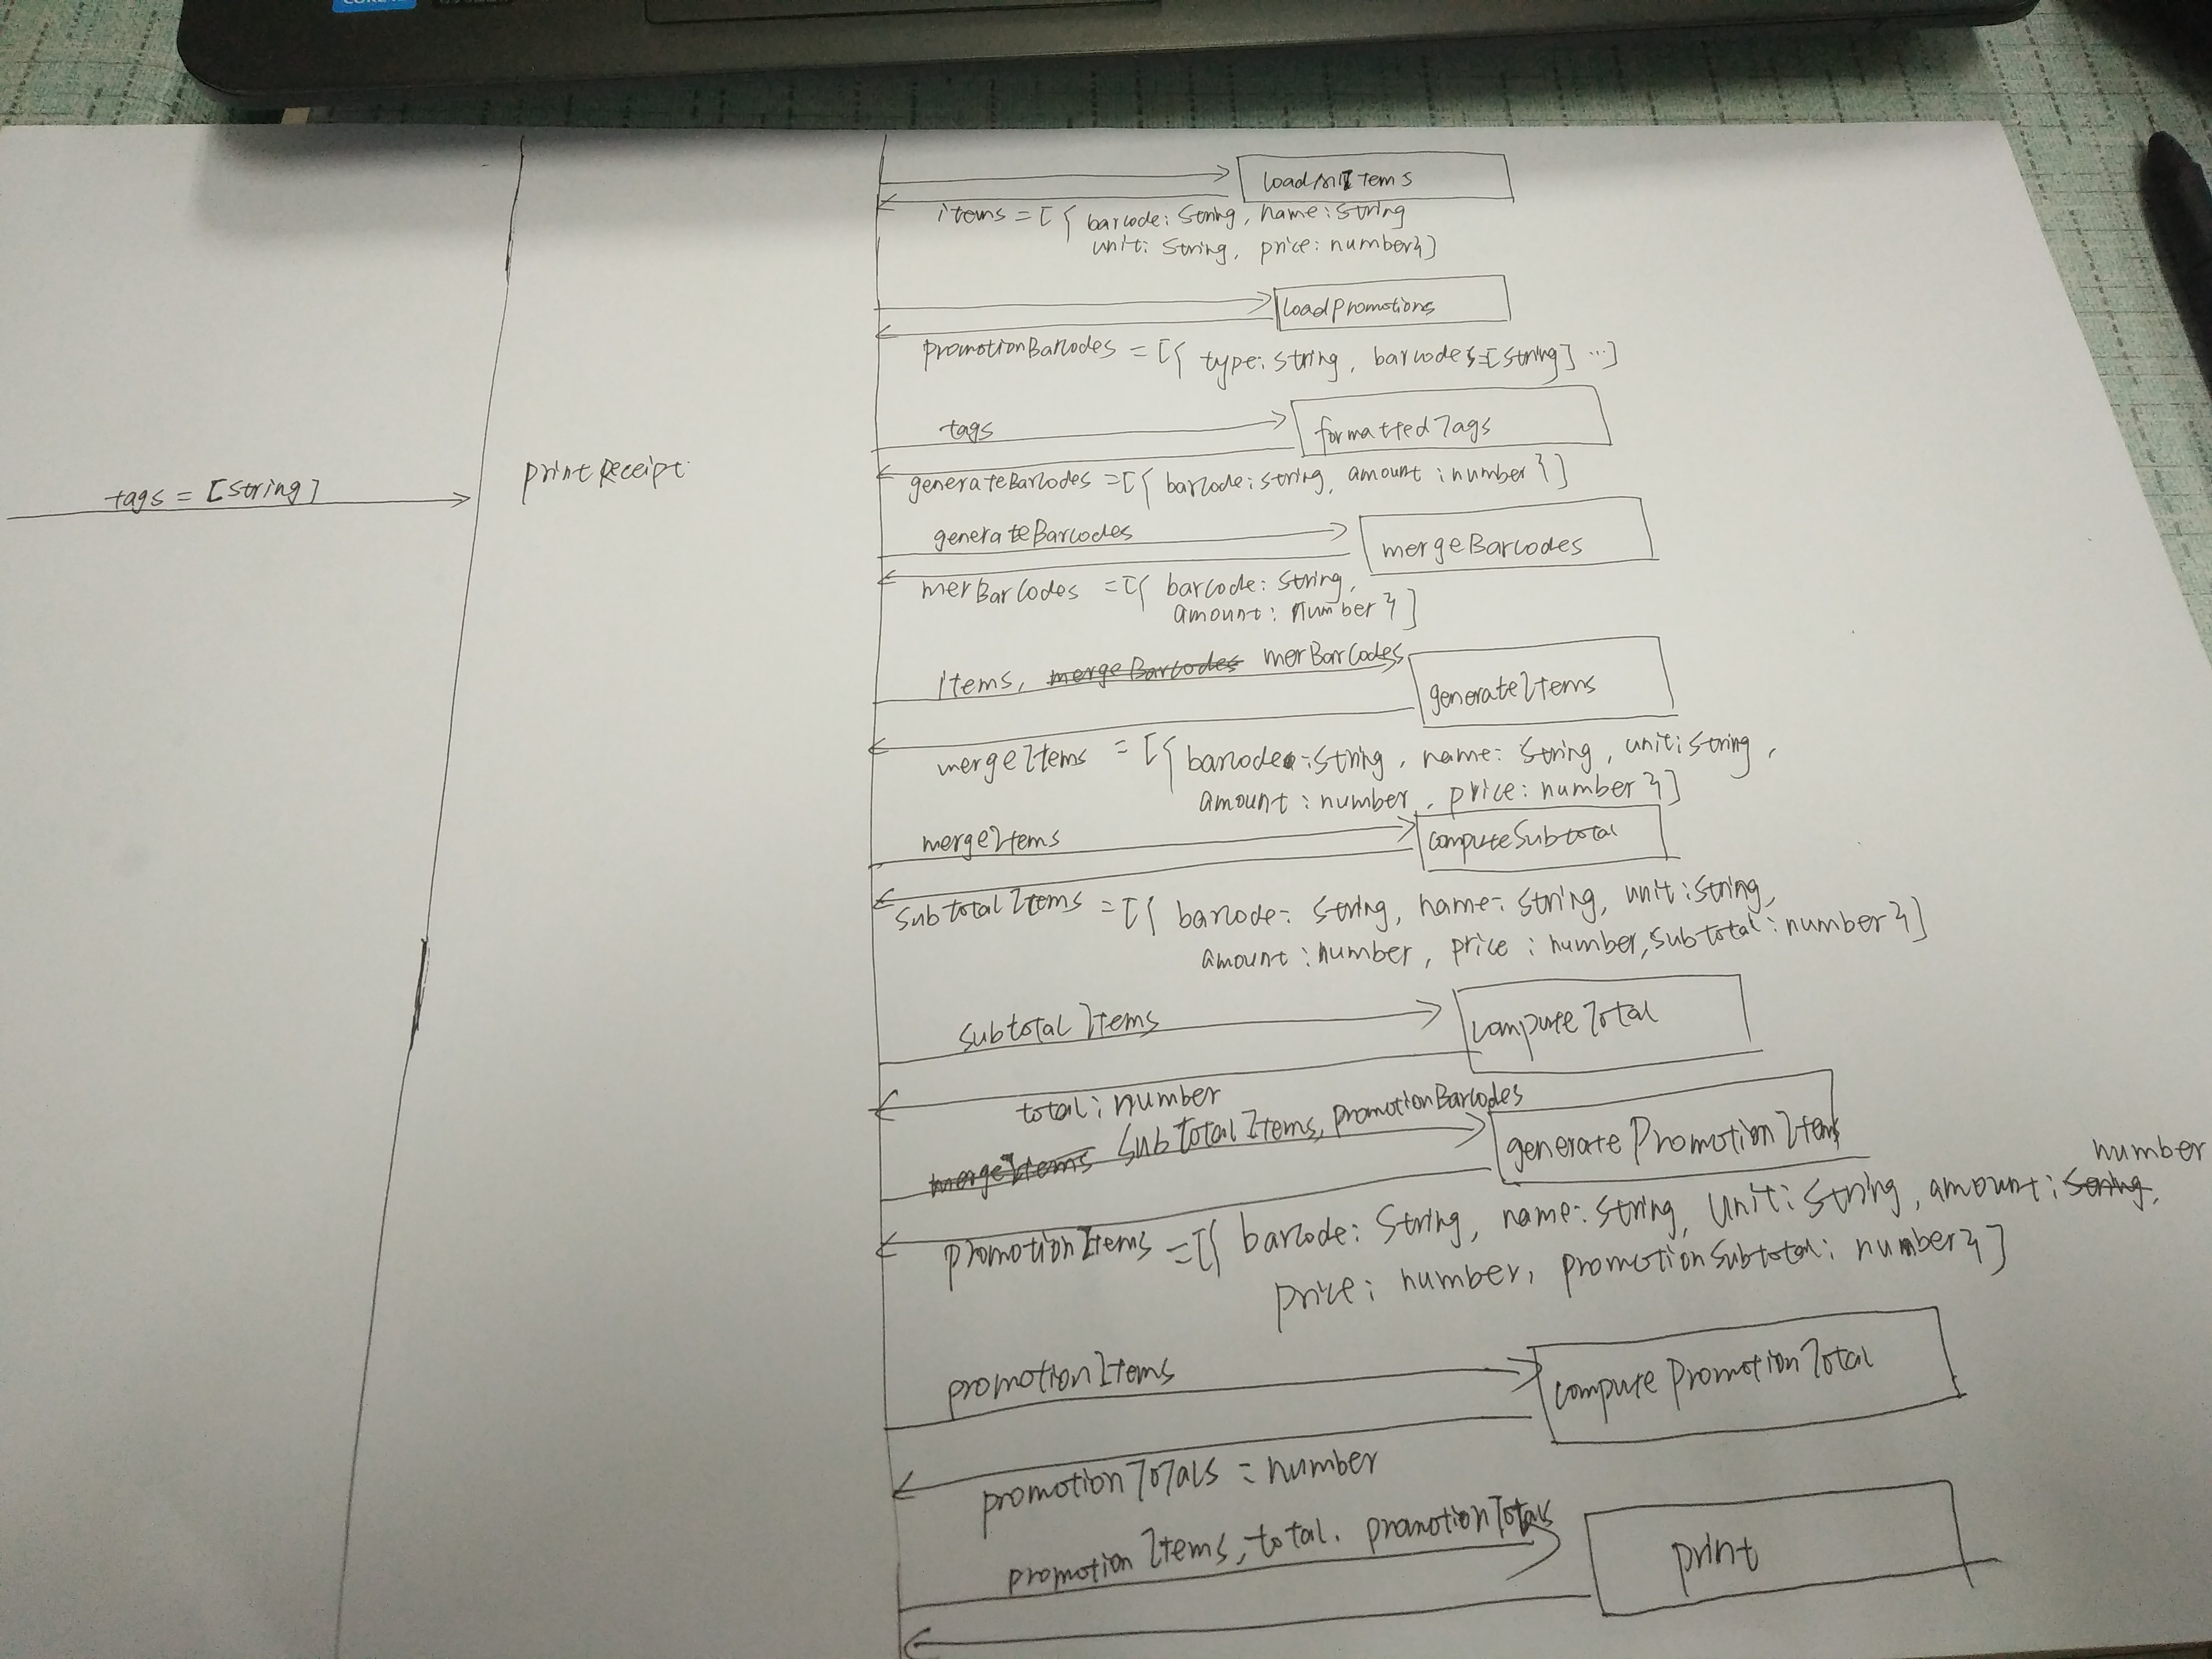 loadAllItems
items = [{ barcode: String, name: String
unit: String, price: number}]
loadPromotions
promotionBarcodes = [{ type: string, barcodes=[string] ...]
tags
formattedTags
tags = [string]
printReceipt
generateBarcodes = [{ barcode: string, amount: number }]
generateBarcodes
mergeBarcodes
merBarCodes = [{ barcode: string,
amount: number }]
items, mergeBarcodes merBarCodes
generateItems
mergeItems = [{ barcode: string, name: string, unit: string,
amount: number, price: number }]
mergeItems
computeSubtotal
SubtotalItems = [{ barcode: string, name: string, unit: string,
amount: number, price: number, subtotal: number }]
SubtotalItems
computeTotal
total: number
mergeItems SubTotalItems, promotionBarcodes
generatePromotionItems
number
promotionItems = [{ barcode: String, name: string, unit: string, amount: string,
price: number, promotionSubtotal: number }]
promotionItems
computePromotionTotal
promotionTotals = number
promotionItems, total. promotionTotals
print